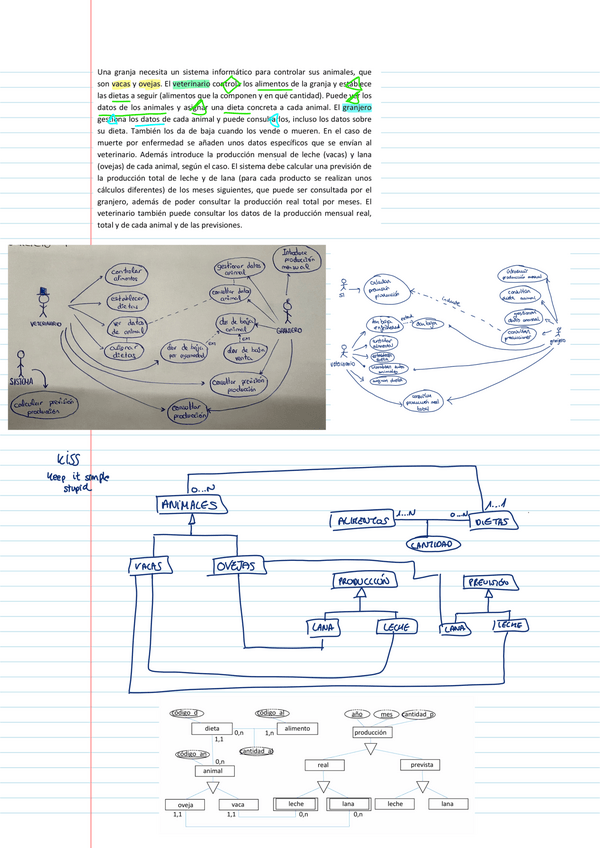 Una granja necesita un sistema informático para controlar sus animales, que
son vacas y ovejas. El veterinario controla los alimentos de la granja y establece
las dietas a seguir (alimentos que la componen y en qué cantidad). Puede ver los
datos de los animales y asignar una dieta concreta a cada animal. El granjero
gestiona los datos de cada animal y puede consultarlos, incluso los datos sobre
su dieta. También los da de baja cuando los vende o mueren. En el caso de
muerte por enfermedad se añaden unos datos específicos que se envían al
veterinario. Además introduce la producción mensual de leche (vacas) y lana
(ovejas) de cada animal, según el caso. El sistema debe calcular una previsión de
la producción total de leche y de lana (para cada producto se realizan unos
cálculos diferentes) de los meses siguientes, que puede ser consultada por el
granjero, además de poder consultar la producción real total por meses. El
veterinario también puede consultar los datos de la producción mensual real,
total y de cada animal y de las previsiones.
controlar
alimentos
establecer
dietas
ver datos
de animal
dietas
VETERINARIO
SISTEMA
calcular previsión
producción
gestionar datos
animal
consultar datos
animal
Introduce
producción
mensual
GRANJERO
dar de baja
animal
dar de baja
por enfermedad
dar de baja
venta
consultar previsión
producción
consultar
producción
SI
calcular
producción
include
introducir
producción mensual
consultar
datos animal
gestionar
datos animal
consultar
previsiones
granjero
dar baja
enfermedad
extend
dar baja
controlar
alimentos
establecer
dietas
asignar dieta
veterinario
consultar
producción real
total
KISS
keep it simple
stupid
0...N
ANIMALES
ALIMENTOS
1...N
0...N
1...1
DIETAS
CANTIDAD
VACAS
OVEJAS
PRODUCCIÓN
PREVISIÓN
LANA
LECHE
LANA
LECHE
código_d
código_al
año
mes
cantidad_p
dieta
0,n
1,n
alimento
producción
1,1
código_an
cantidad_al
0,n
animal
real
prevista
oveja
vaca
leche
lana
leche
lana
1,1
1,1
0,n
0,n